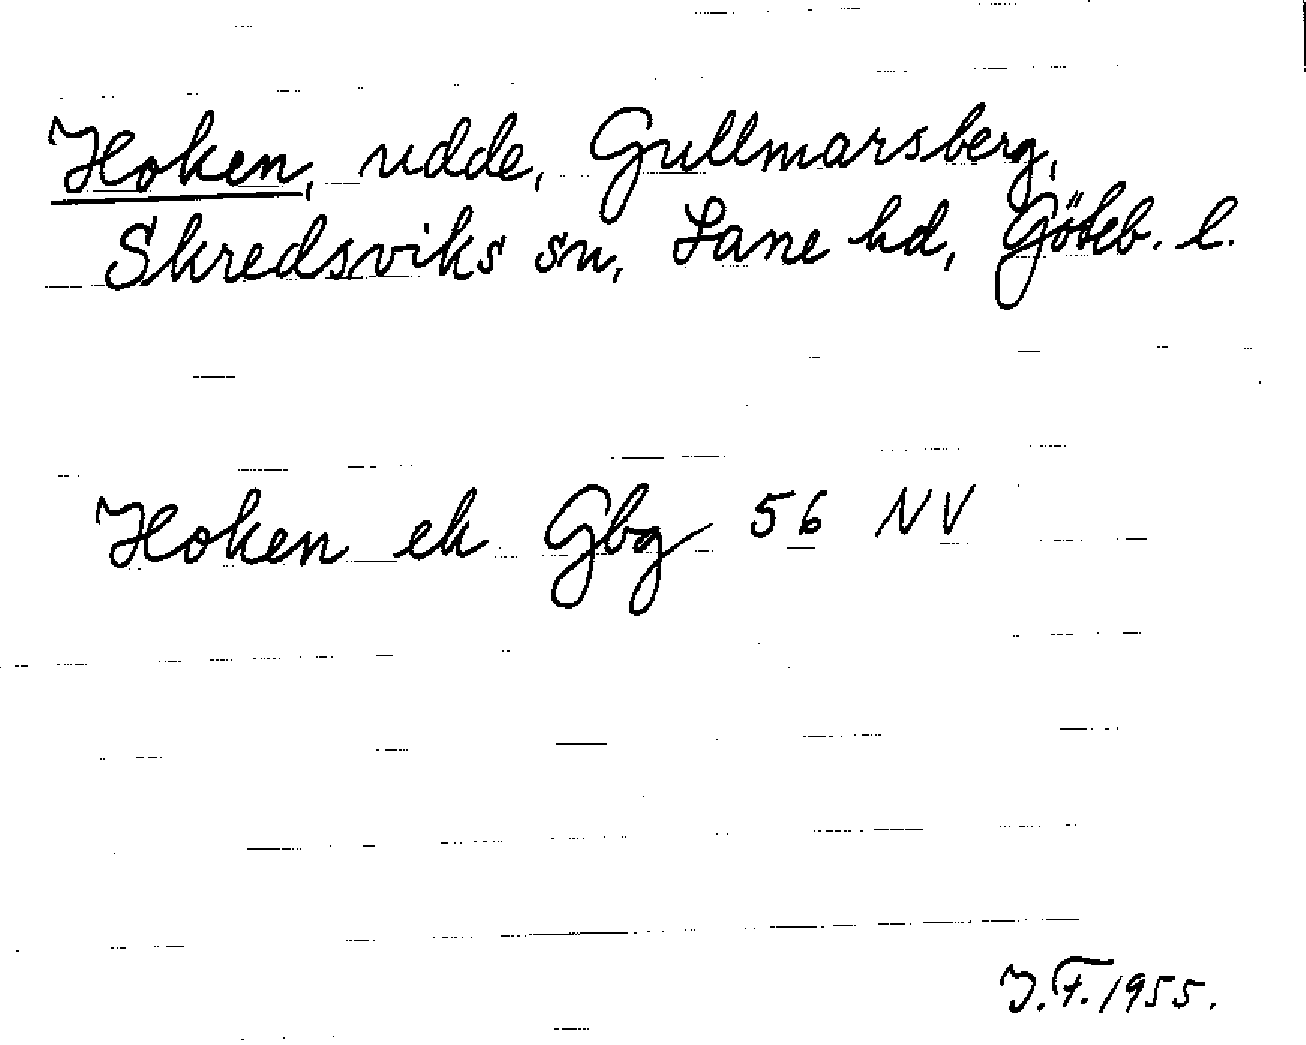 Hoken, udde, Gullmarsberg,
Skredsviks sn, Lane hd, Göteb. l.
Hoken ek Gbg 56 NV
J.F. 1955.